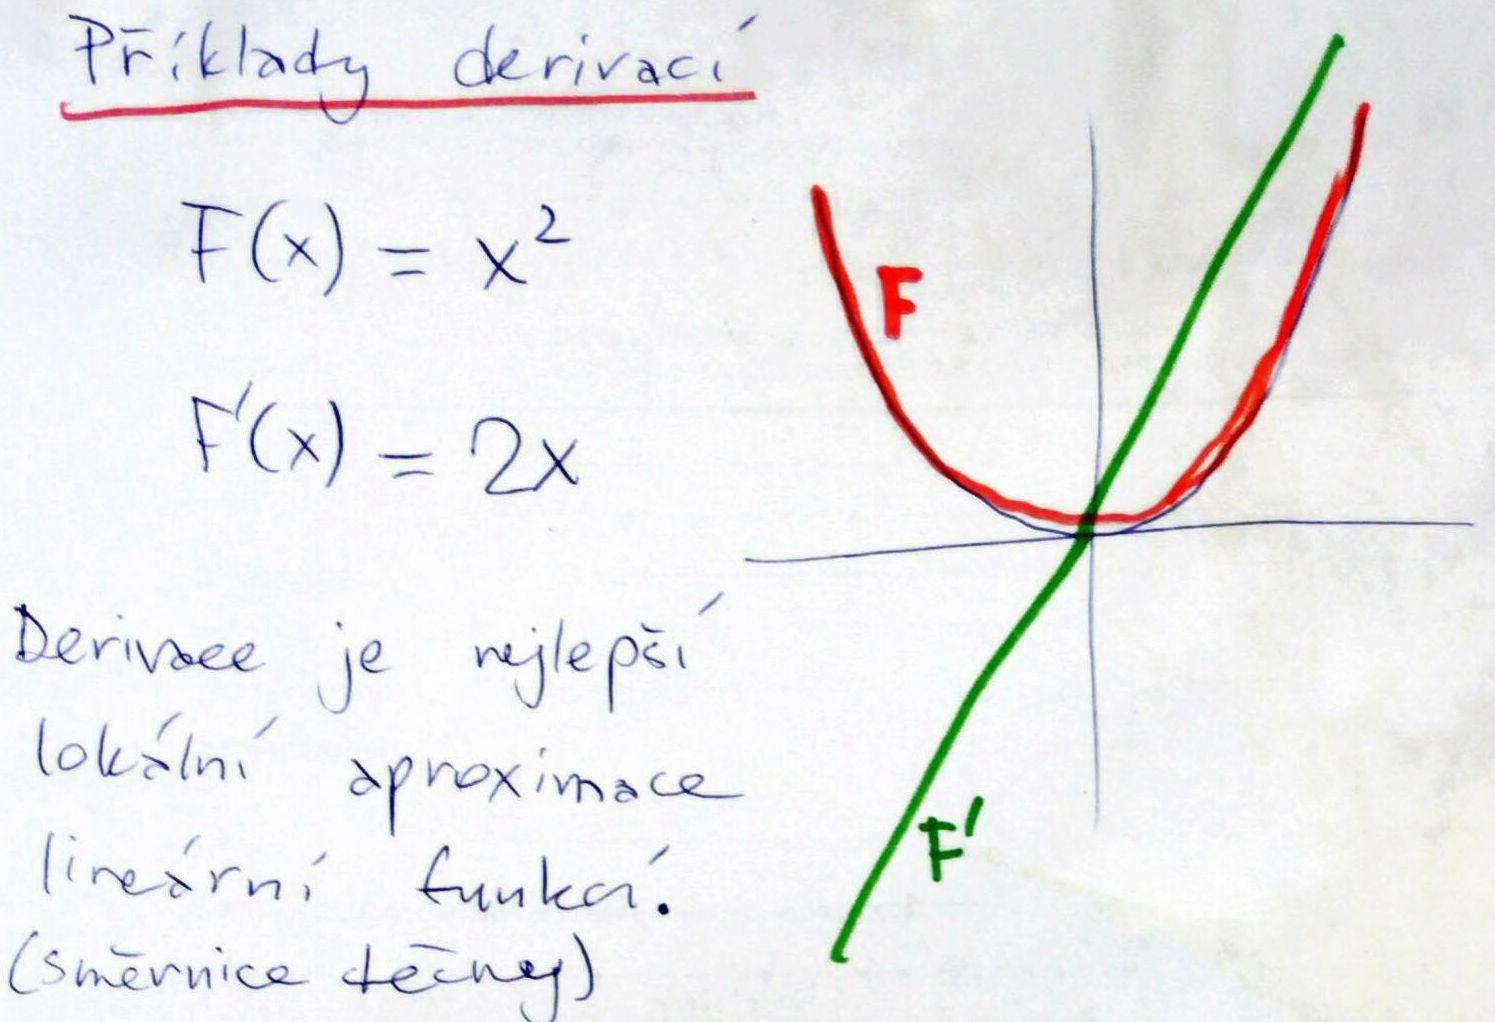 Příklady derivací
F(x) = x²
F'(x) = 2x
F
Derivace je nejlepší
lokální aproximace
lineární funkcí.
(směrnice tečny)
F'